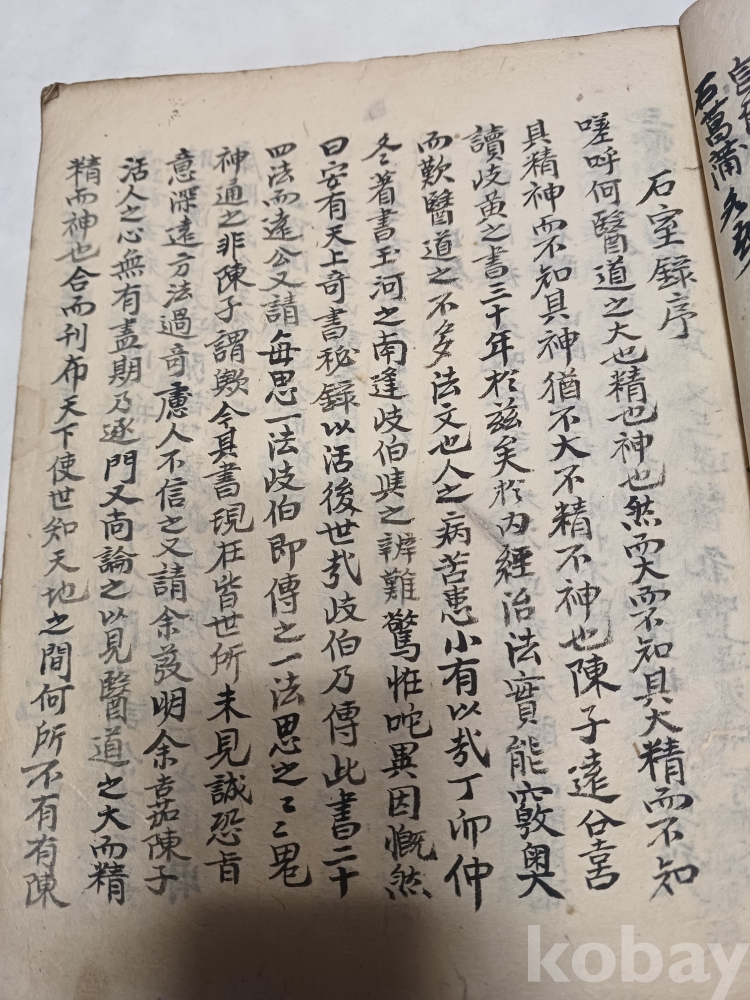 石室錄序
嗟呼何醫道之大也精也神也然而大而不知其大精而不知
其精神而不知其神猶不大不精不神也陳子遠公喜
讀歧黃之書三十年於茲矣於內經治法實能窾奧
而歎醫道之不多法文也人之病苦患小有以㢤丁卯仲
冬著書玉河之南逢歧伯與之辨難驚怪咤異因慨然
曰安有天上奇書秘錄以活後世㢤歧伯乃傳此書二十
四法而遠公又請每思一法歧伯即傳之一法思之〻〻鬼
神通之非陳子謂歟今其書現在皆世所未見誠恐旨
意深遠方法過奇慮人不信之又請余發明余喜茄陳子
活人之心無有盡期乃逐門又尚論之以見醫道之大而精
精而神也合而刊布天下使世知天地之間何所不有有陳
石菖蒲
kobay